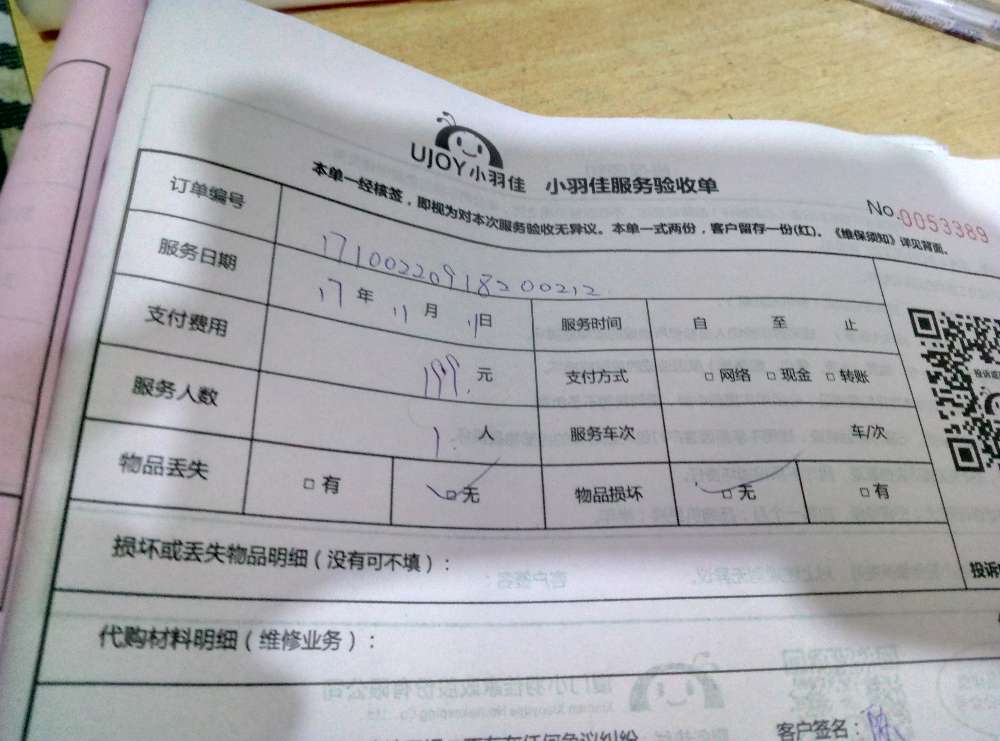 UJOY小羽佳 小羽佳服务验收单
No.0053389
本单一经核签，即视为对本次服务验收无异议。本单一式两份，客户留存一份(红)。《维保须知》详见背面。
订单编号 17100220918200212
服务日期 17年11月11日 服务时间 自 至 止
支付费用 199.元 支付方式 □网络 □现金 □转账
服务人数 1.人 服务车次 车/次
物品丢失 □有 □无 物品损坏 □无 □有
损坏或丢失物品明细（没有可不填）：
投诉
代购材料明细（维修业务）：
客户签名：